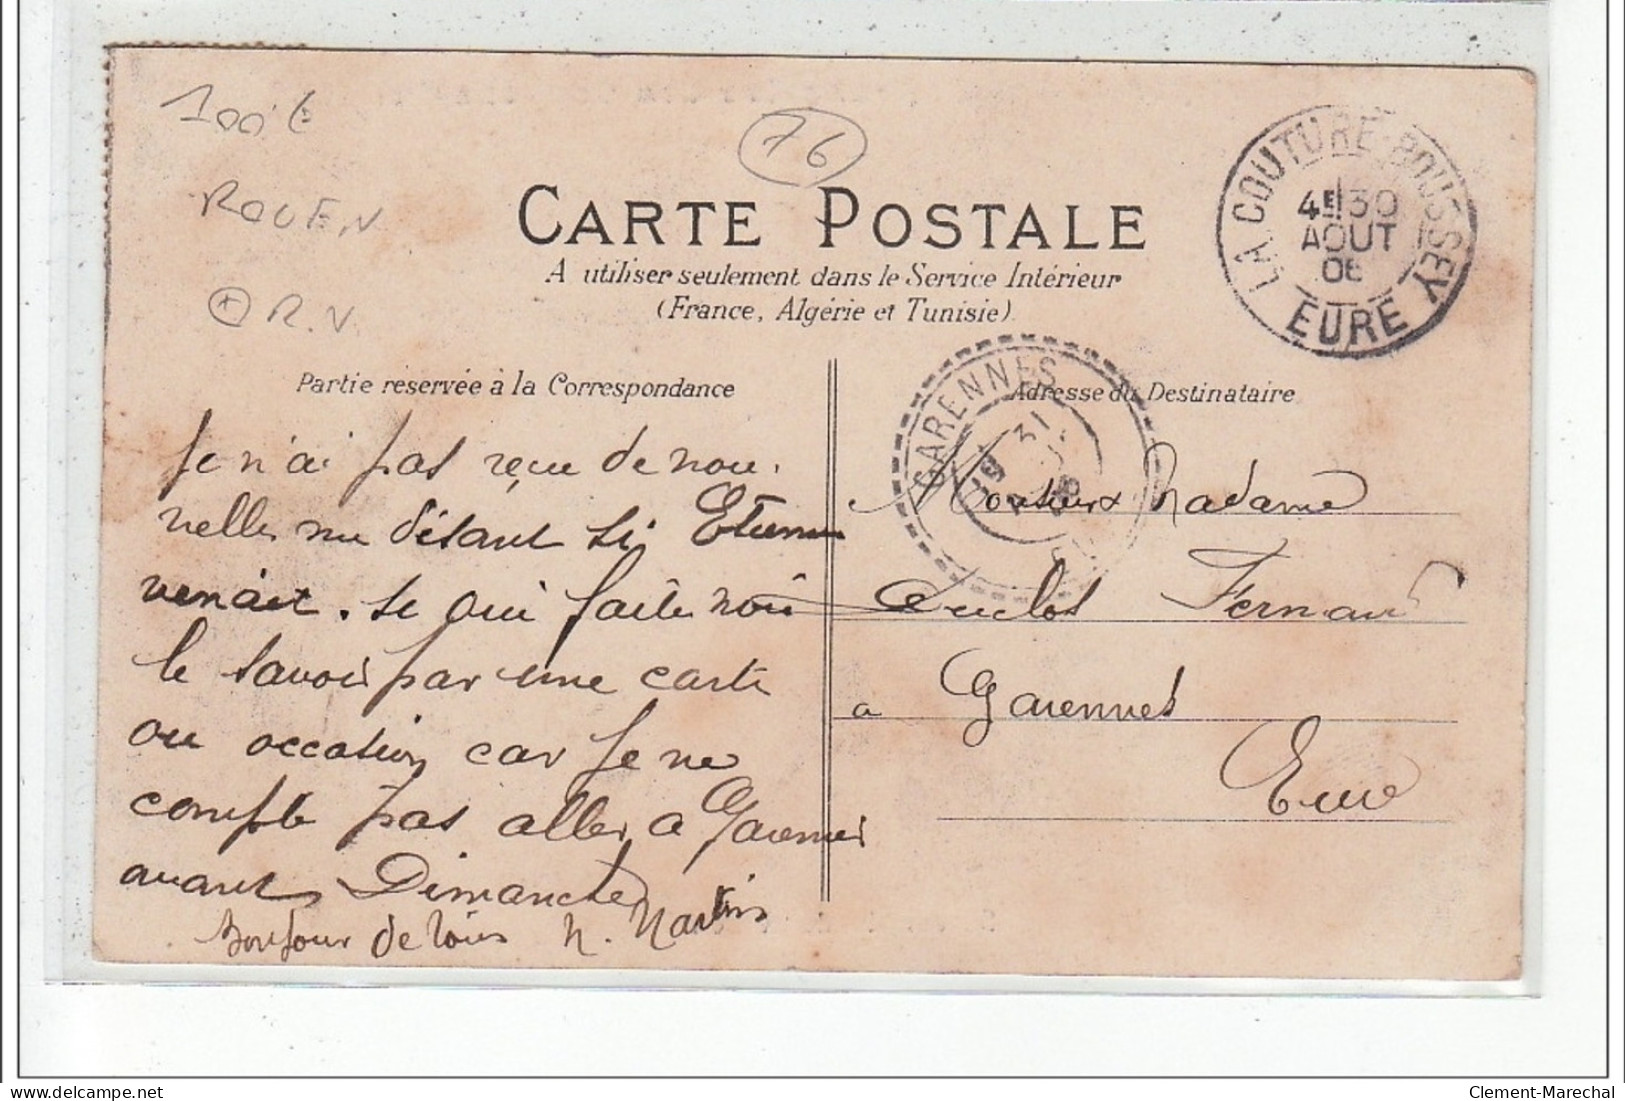 100€
76
ROUEN
R.V.
CARTE POSTALE
A utiliser seulement dans le Service Intérieur
(France, Algérie et Tunisie)
LA COUTURE-BOUSSEY
4E 30
AOUT
06
EURE
GARENNES
31
Partie réservée à la Correspondance
Adresse du Destinataire
Je n'ai pas reçu de nou.
velles me disant si Etienne
venait. si oui faite nous
le savoir par une carte
ou occation car je ne
compte pas aller a Garennes
avant Dimanche
Bonjour de tous N. Martin
Monsieur & Madame
Fernand
a Garennes
Eure
Clement-Marechal